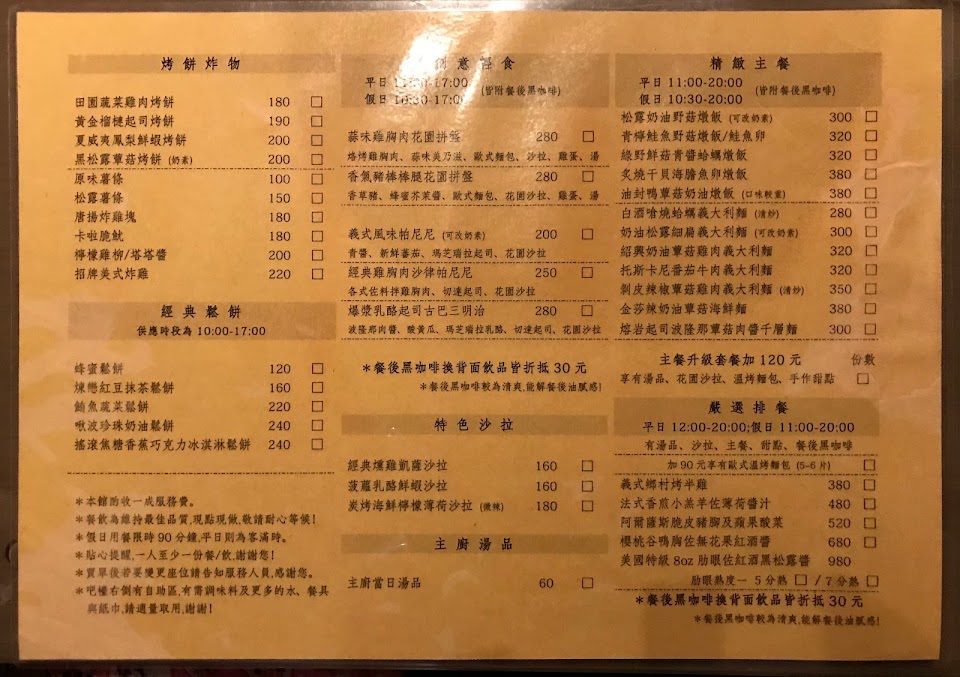 烤餅炸物
田園蔬菜雞肉烤餅 180 □
黃金榴槤起司烤餅 190 □
夏威夷鳳梨鮮蝦烤餅 200 □
黑松露蕈菇烤餅 (奶素) 200 □
原味薯條 100 □
松露薯條 150 □
唐揚炸雞塊 180 □
卡啦脆魷 180 □
檸檬雞柳/塔塔醬 200 □
招牌美式炸雞 220 □
經典鬆餅
供應時段為 10:00-17:00
蜂蜜鬆餅 120 □
煉戀紅豆抹茶鬆餅 160 □
鮪魚蔬菜鬆餅 220 □
啾波珍珠奶油鬆餅 240 □
搖滾焦糖香蕉巧克力冰淇淋鬆餅 240 □
＊本館酌收一成服務費。
＊餐飲為維持最佳品質,現點現做,敬請耐心等候!
＊假日用餐限時90分鐘,平日則為客滿時。
＊貼心提醒,一人至少一份餐/飲,謝謝您!
＊買單後若要變更座位請告知服務人員,感謝您。
＊吧檯右側有自助區,有需調味料及更多的水、餐具
與紙巾,請適量取用,謝謝!
意 食
平日 11:00-17:00
假日 10:30-17:00 (皆附餐後黑咖啡)
蒜味雞胸肉花園拼盤 280 □
烙烤雞胸肉、蒜味美乃滋、歐式麵包、沙拉、雞蛋、湯
香氣豬棒棒腿花園拼盤 280 □
香草豬、蜂蜜芥茉醬、歐式麵包、花園沙拉、雞蛋、湯
義式風味帕尼尼 (可改奶素) 200 □
青醬、新鮮蕃茄、瑪芝瑞拉起司、花園沙拉
經典雞胸肉沙律帕尼尼 250 □
各式佐料拌雞胸肉、切達起司、花園沙拉
爆漿乳酪起司古巴三明治 280 □
波隆那肉醬、酸黃瓜、瑪芝瑞拉乳酪、切達起司、花園沙拉
＊餐後黑咖啡換背面飲品皆折抵 30 元
＊餐後黑咖啡較為清爽,能解餐後油膩感!
特色沙拉
經典燻雞凱薩沙拉 160 □
菠蘿乳酪鮮蝦沙拉 160 □
炭烤海鮮檸檬薄荷沙拉 (微辣) 180 □
主廚湯品
主廚當日湯品 60 □
精緻主餐
平日 11:00-20:00
假日 10:30-20:00 (皆附餐後黑咖啡)
松露奶油野菇燉飯 (可改奶素) 300 □
青檸鮭魚野菇燉飯/鮭魚卵 320 □
綠野鮮菇青醬蛤蠣燉飯 320 □
炙燒干貝海膽魚卵燉飯 380 □
油封鴨蕈菇奶油燉飯 (口味較重) 380 □
白酒嗆燒蛤蠣義大利麵 (清炒) 280 □
奶油松露細扁義大利麵 (可改奶素) 300 □
紹興奶油蕈菇雞肉義大利麵 320 □
托斯卡尼番茄牛肉義大利麵 320 □
剝皮辣椒蕈菇雞肉義大利麵 (清炒) 350 □
金莎辣奶油蕈菇海鮮麵 380 □
熔岩起司波隆那蕈菇肉醬千層麵 300 □
主餐升級套餐加 120 元 份數
享有湯品、花園沙拉、溫烤麵包、手作甜點 □
嚴選排餐
平日 12:00-20:00;假日 11:00-20:00
有湯品、沙拉、主餐、甜點、餐後黑咖啡
加 90 元享有歐式溫烤麵包 (5-6 片) □
義式鄉村烤半雞 380 □
法式香煎小羔羊佐薄荷醬汁 480 □
阿爾薩斯脆皮豬腳及蘋果酸菜 520 □
櫻桃谷鴨胸佐無花果紅酒醬 680 □
美國特級 8oz 肋眼佐紅酒黑松露醬 980
肋眼熟度— 5 分熟 □ / 7 分熟 □
＊餐後黑咖啡換背面飲品皆折抵 30 元
＊餐後黑咖啡較為清爽,能解餐後油膩感!